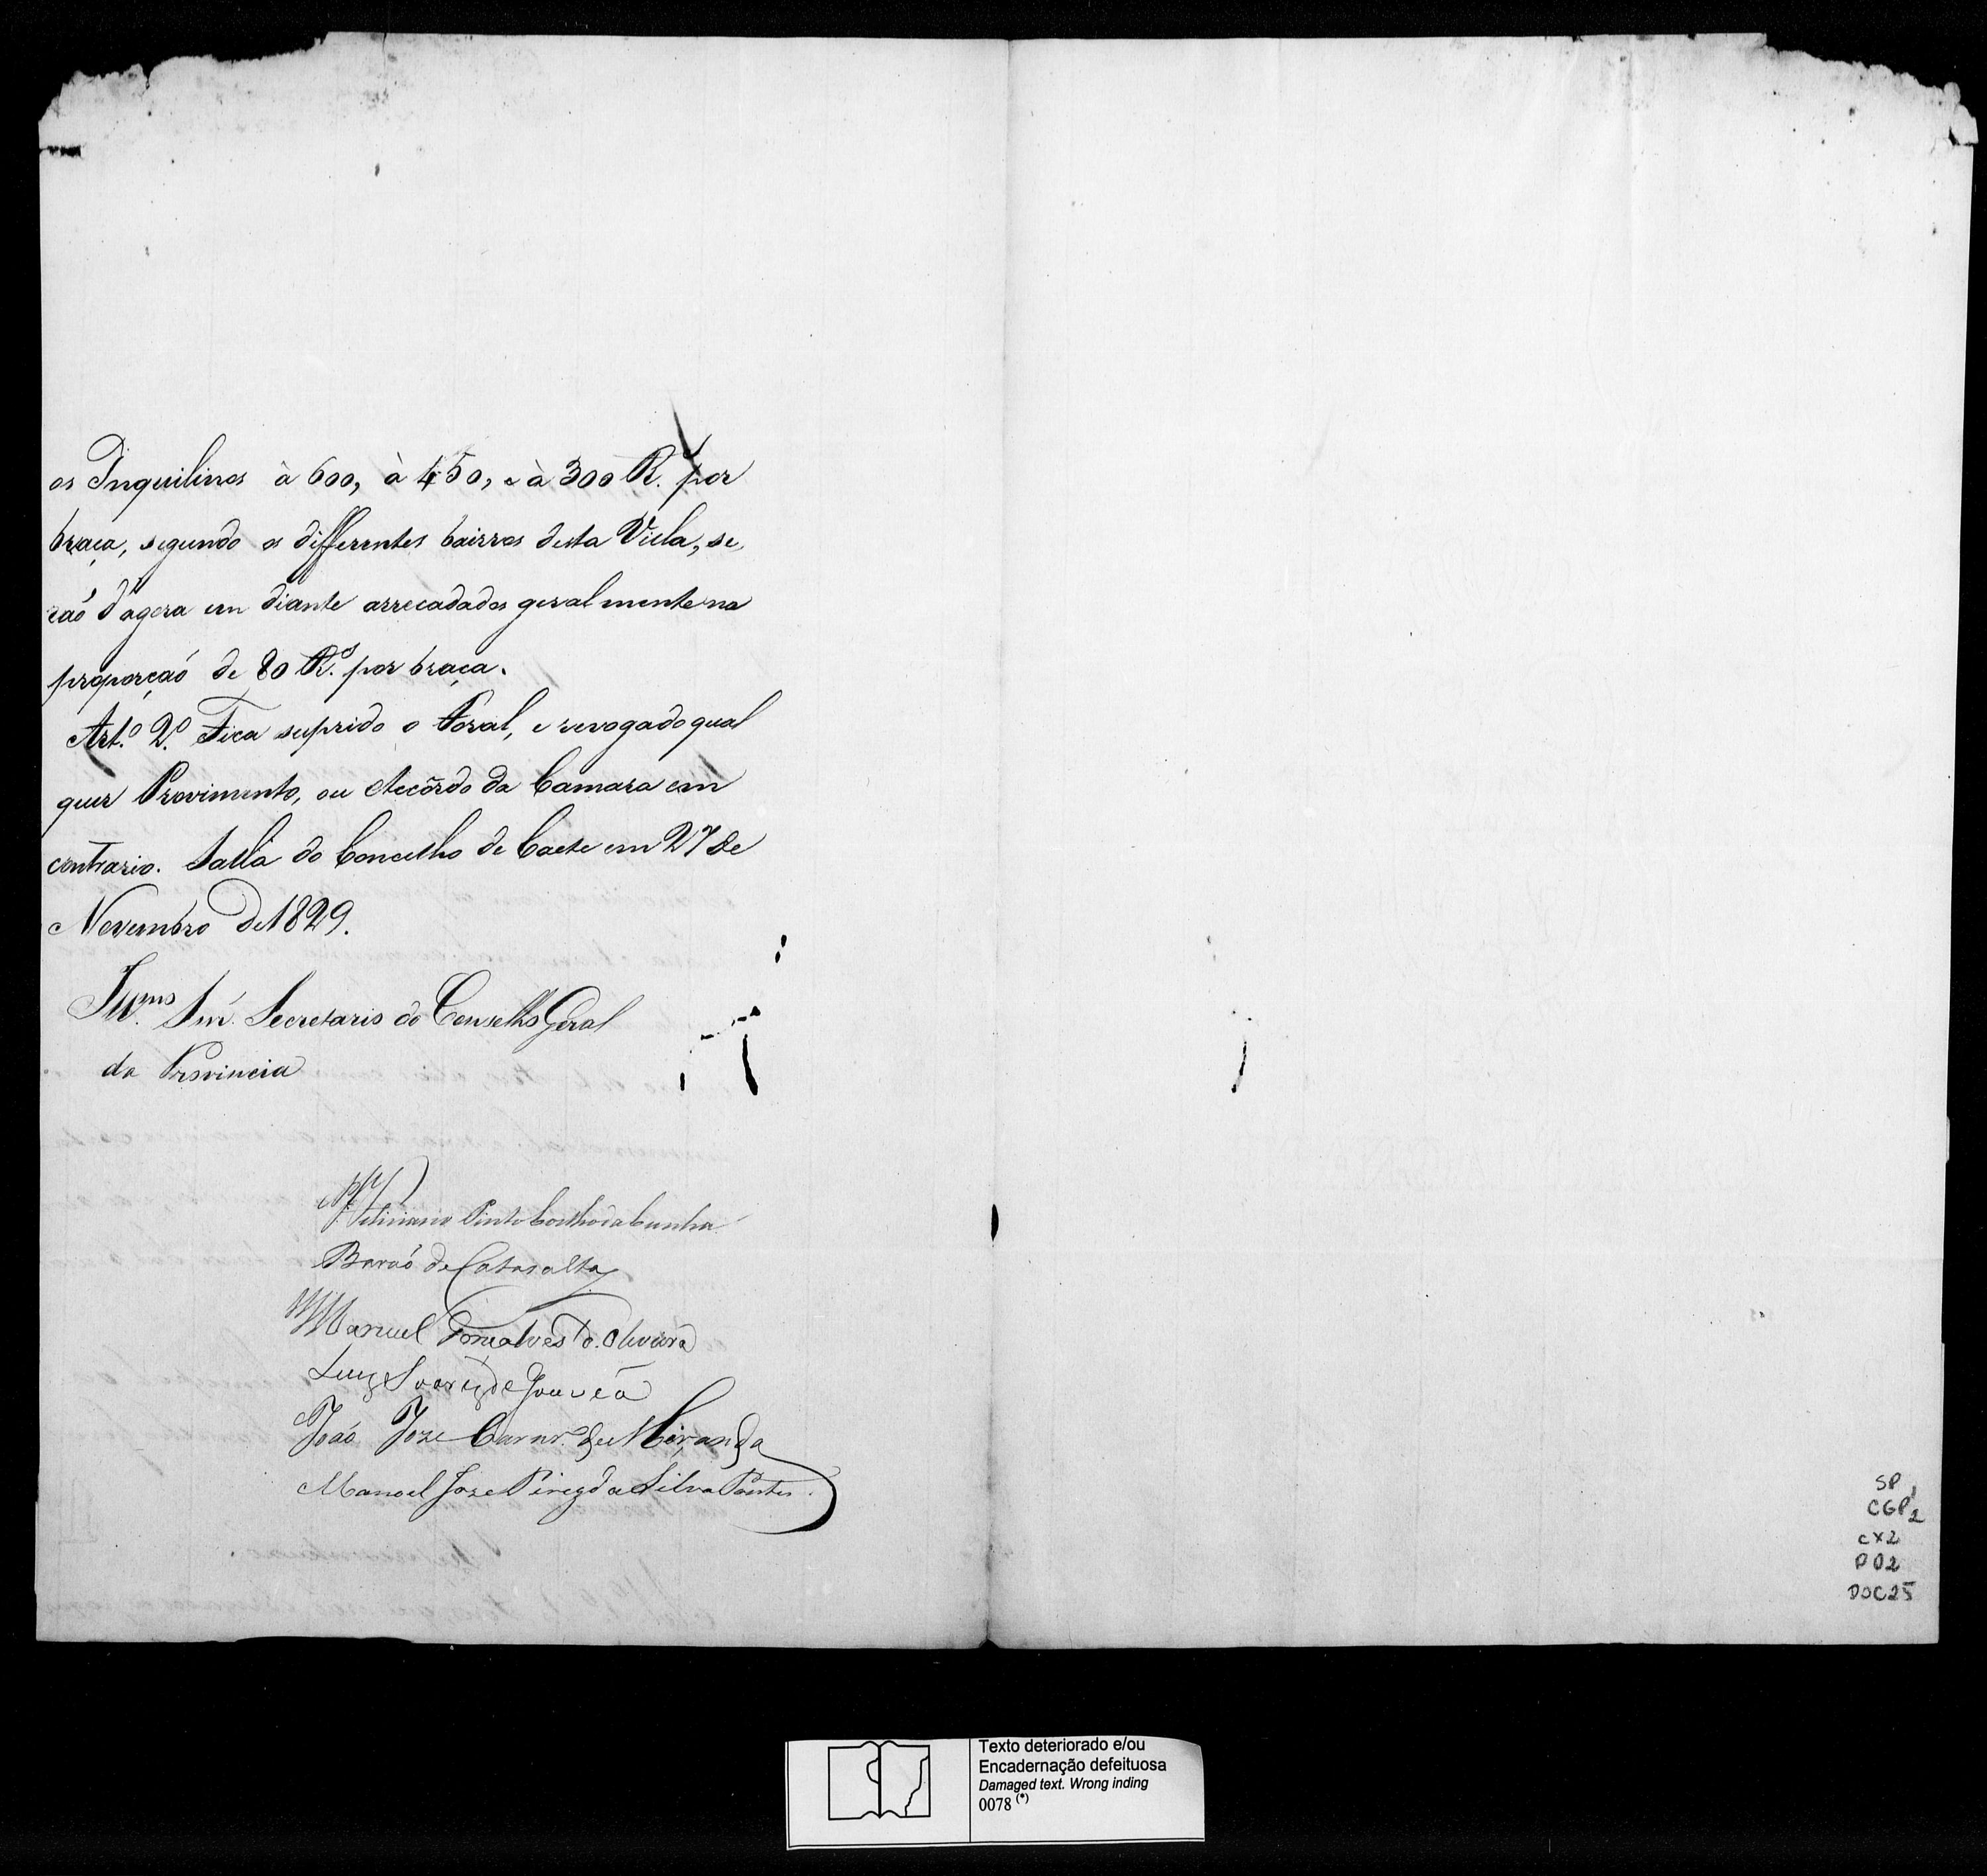 os Inquilinos à 600, à 450, e à 300 R.s por
braça, segundo os differentes bairros desta Villa, se
rão d'agora em diante arrecadados geralmente na
proporção de 80 R.s por braça.
Art.o 2.o Fica suprido o Foral, e revogado qual
quer Provimento, ou Accõrdo da Camara em
contrario. Salla do Concelho de Caete em 27 de
Novembro de 1829.
Ill.mo Snr. Secretario do Conselho Geral
da Provincia
Feliciano Pinto Coelho da Cunha
Barão de Catasaltas
Manuel Gonçalves d. Oliveira
Luiz Soares de Gouvêa
João Joze Carnr.o de Miranda
Manoel Joze Pires da Silva Pontes.
SP
CGP 1/2
CX2
P02
DOC25
Texto deteriorado e/ou
Encadernação defeituosa
Damaged text. Wrong inding
0078 (*)